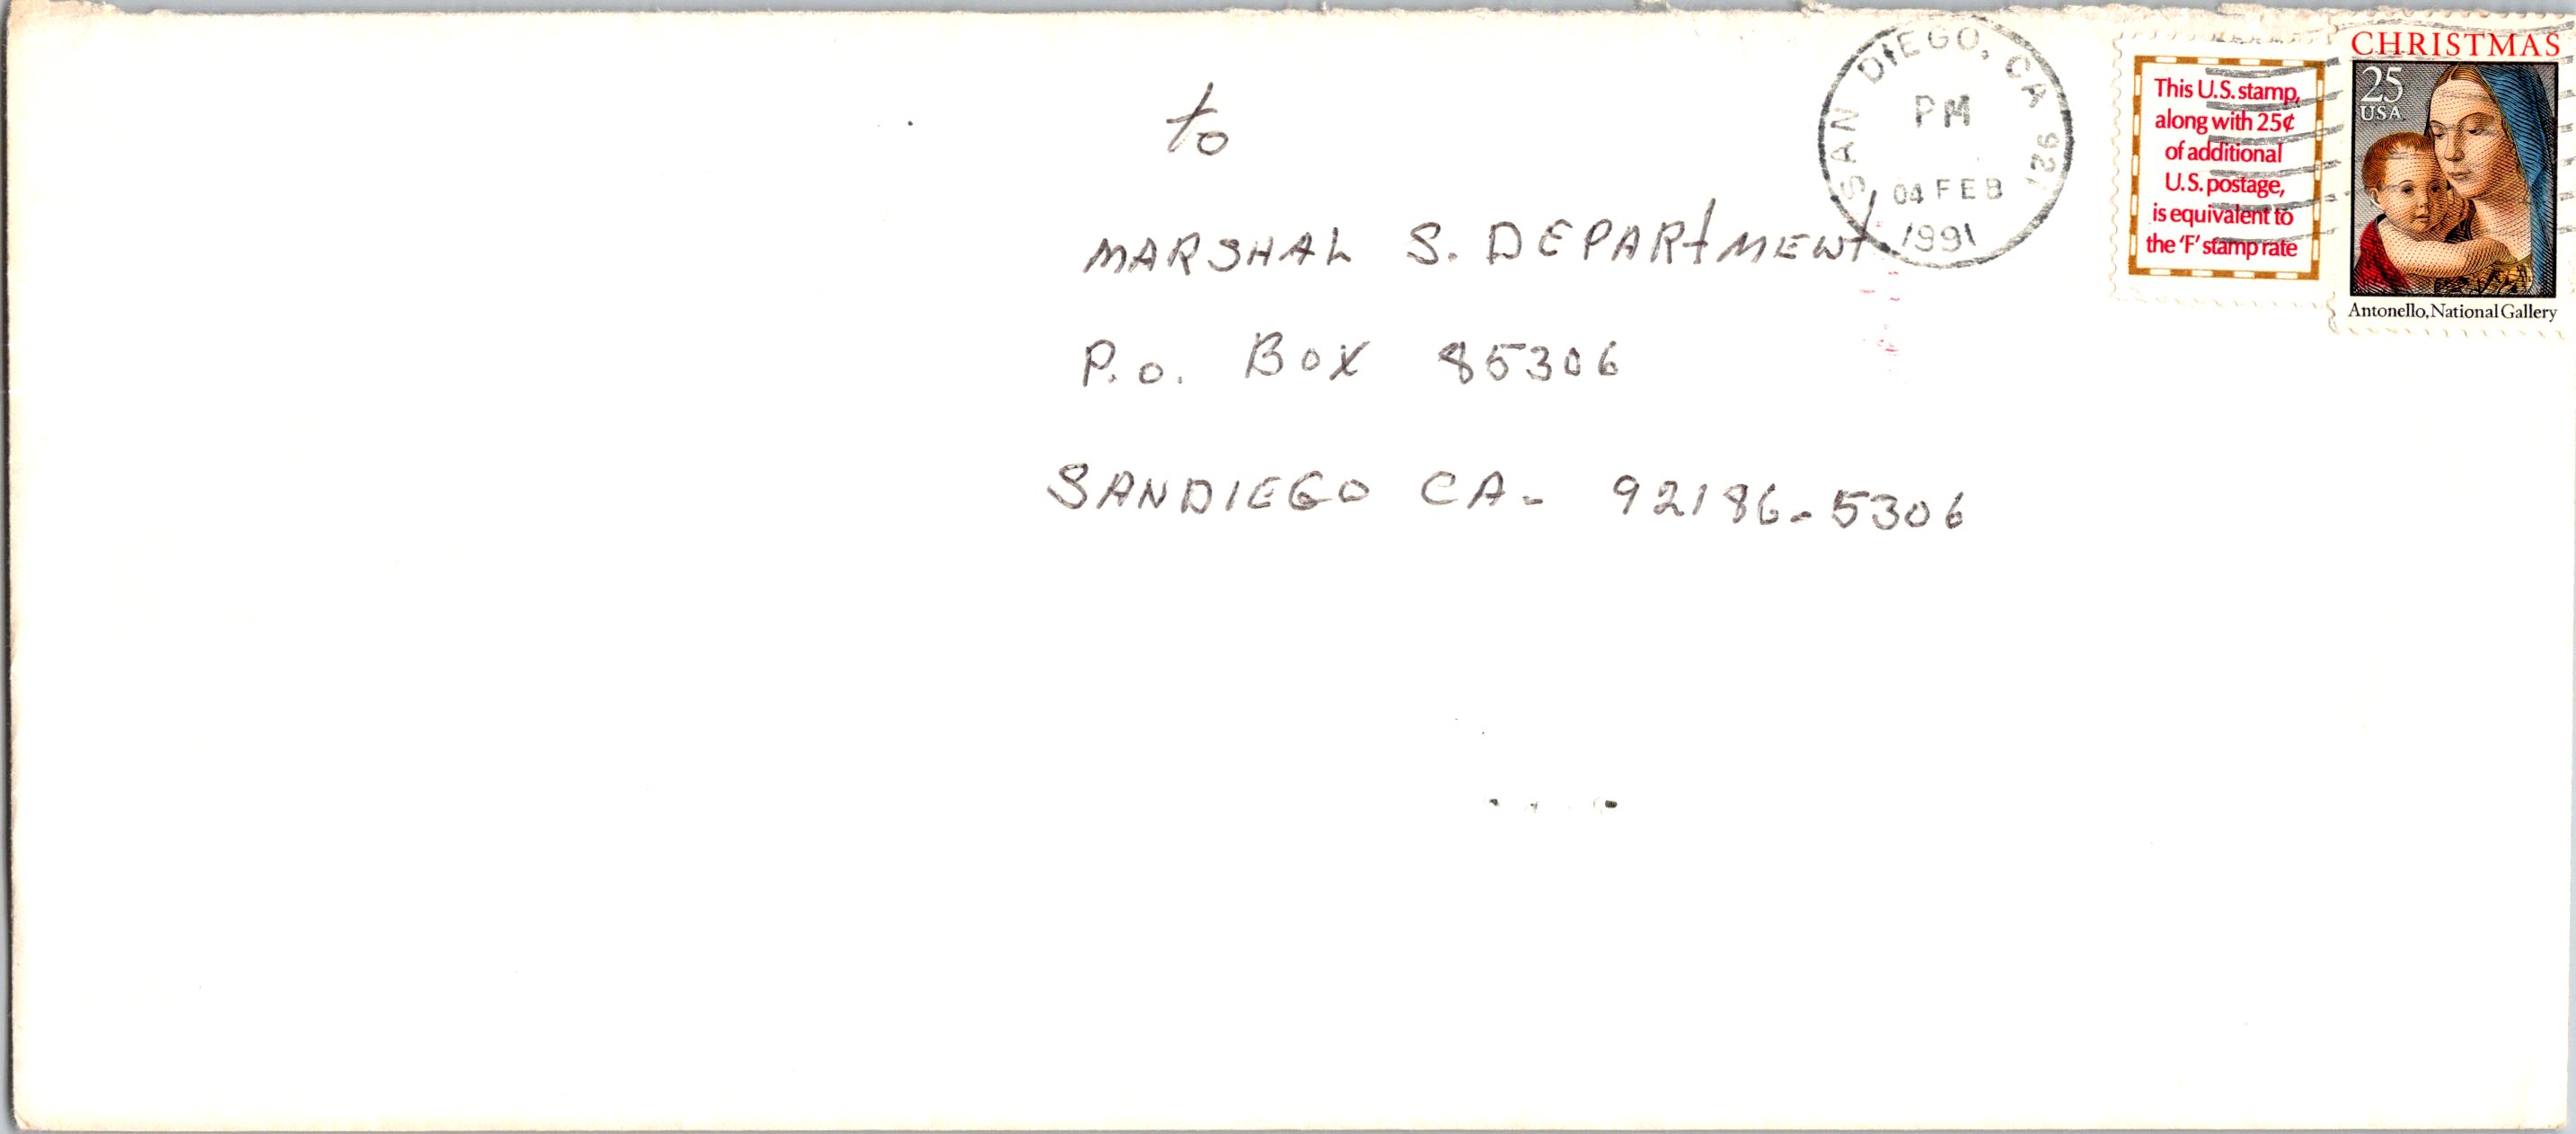 to
MARSHAL S. DEPARtMENt
P.o. Box 85306
SANDIEGO CA- 92186-5306
SAN DIEGO, CA 921
PM
04 FEB
1991
This U.S. stamp,
along with 25¢
of additional
U.S. postage,
is equivalent to
the 'F' stamp rate
CHRISTMAS
25
USA
Antonello, National Gallery